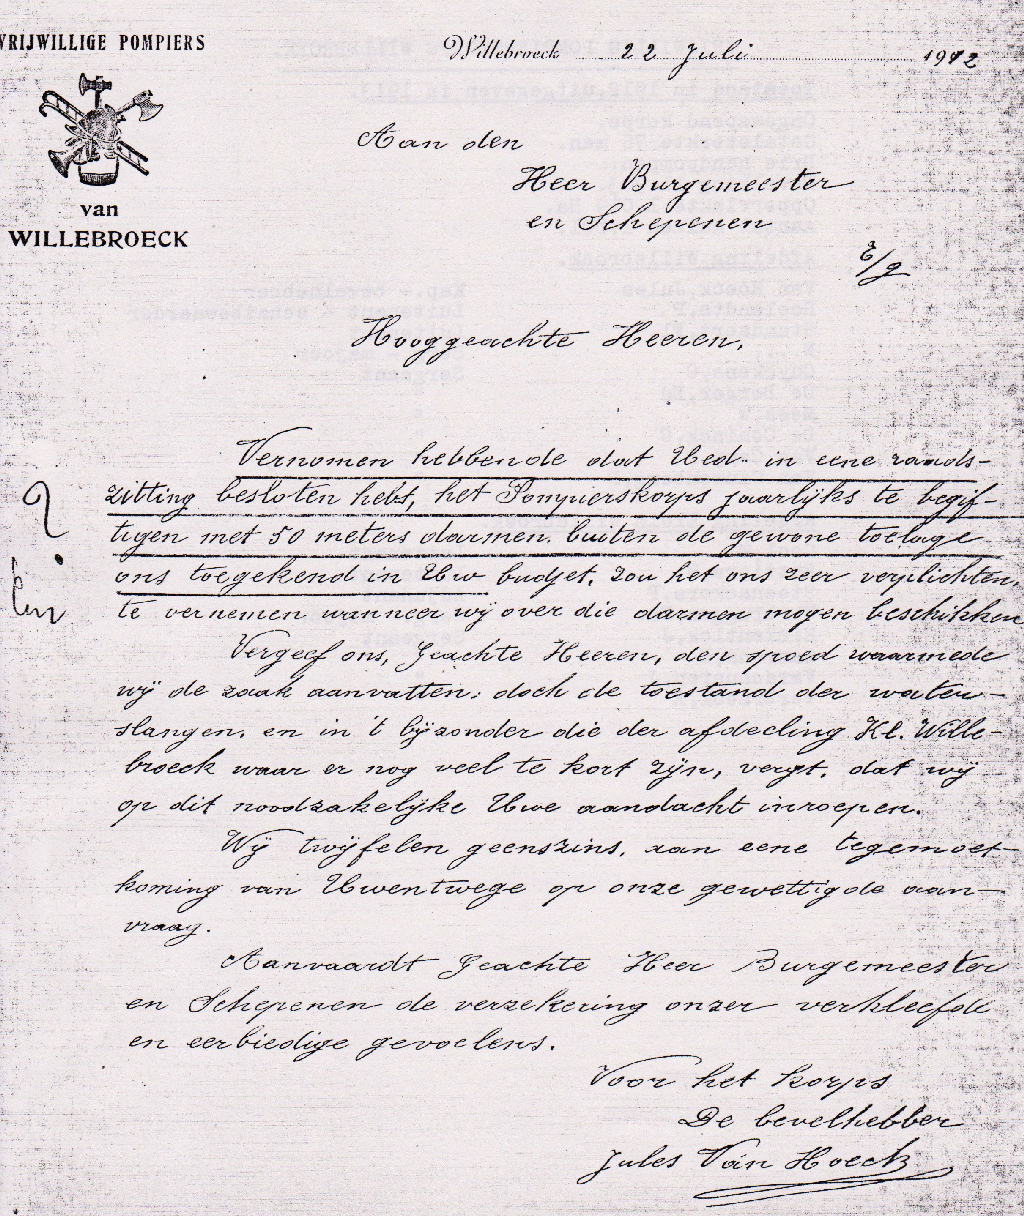 VRIJWILLIGE POMPIERS
van
WILLEBROECK
Willebroeck 22 Juli 1912
Aan den
Heer Burgemeester
en Schepenen
E/g
Hooggeachte Heeren,
Vernomen hebbende dat Ued. in eene raads-
zitting besloten hebt, het Pompierskorps jaarlijks te begif-
tigen met 50 meters darmen. buiten de gewone toelage
ons toegekend in Uw budjet, zou het ons zeer verplichten,
te vernemen wanneer wij over die darmen mogen beschikken
Vergeef ons, Geachte Heeren, den spoed waarmede
wij de zaak aanvatten; doch de toestand der water-
slangen, en in 't bijzonder die der afdeeling Kl. Wille-
broeck waar er nog veel te kort zijn, vergt, dat wij
op dit noodzakelijke Uwe aandacht inroepen.
Wij twijfelen geenszins, aan eene tegemoet-
koming van Uwentwege op onze gewettigde aan-
vraag.
Aanvaardt Geachte Heer Burgemeester
en Schepenen de verzekering onzer verkleefde
en eerbiedige gevoelens.
Voor het korps
De bevelhebber
Jules Van Hoeck